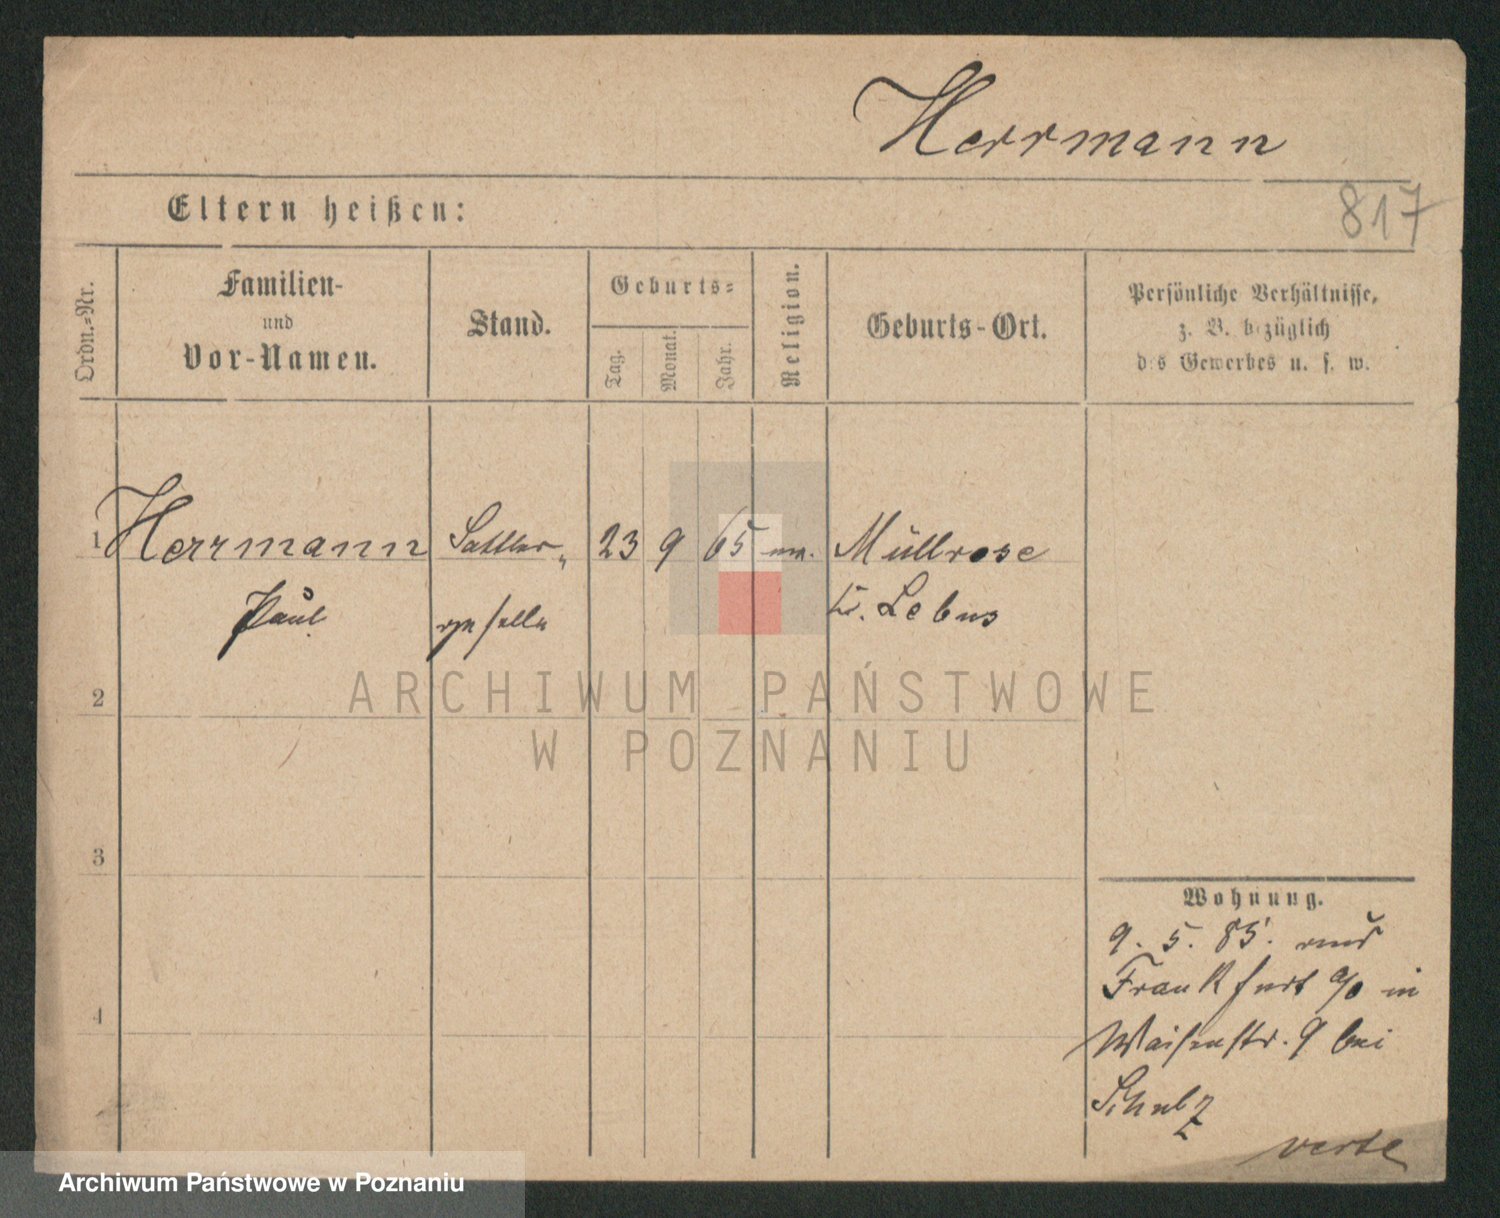 Herrmann
817
Eltern heißen:
Ordn.=Nr.
Familien-
und
Vor-Namen.
Stand.
Geburts=
Tag.
Monat.
Jahr.
Religion.
Geburts-Ort.
Persönliche Verhältnisse,
z. B. bezüglich
des Gewerbes u. s. w.
1 Herrmann Sattler- 23 9 65 Müllrose
Paul geselle Kr. Lebus
2
3
4
Wohnung.
9. 5. 85. aus
Frankfurt a/o in
Waisenstr. 9 bei
Schulz
verte
ARCHIWUM PAŃSTWOWE
W POZNANIU
Archiwum Państwowe w Poznaniu